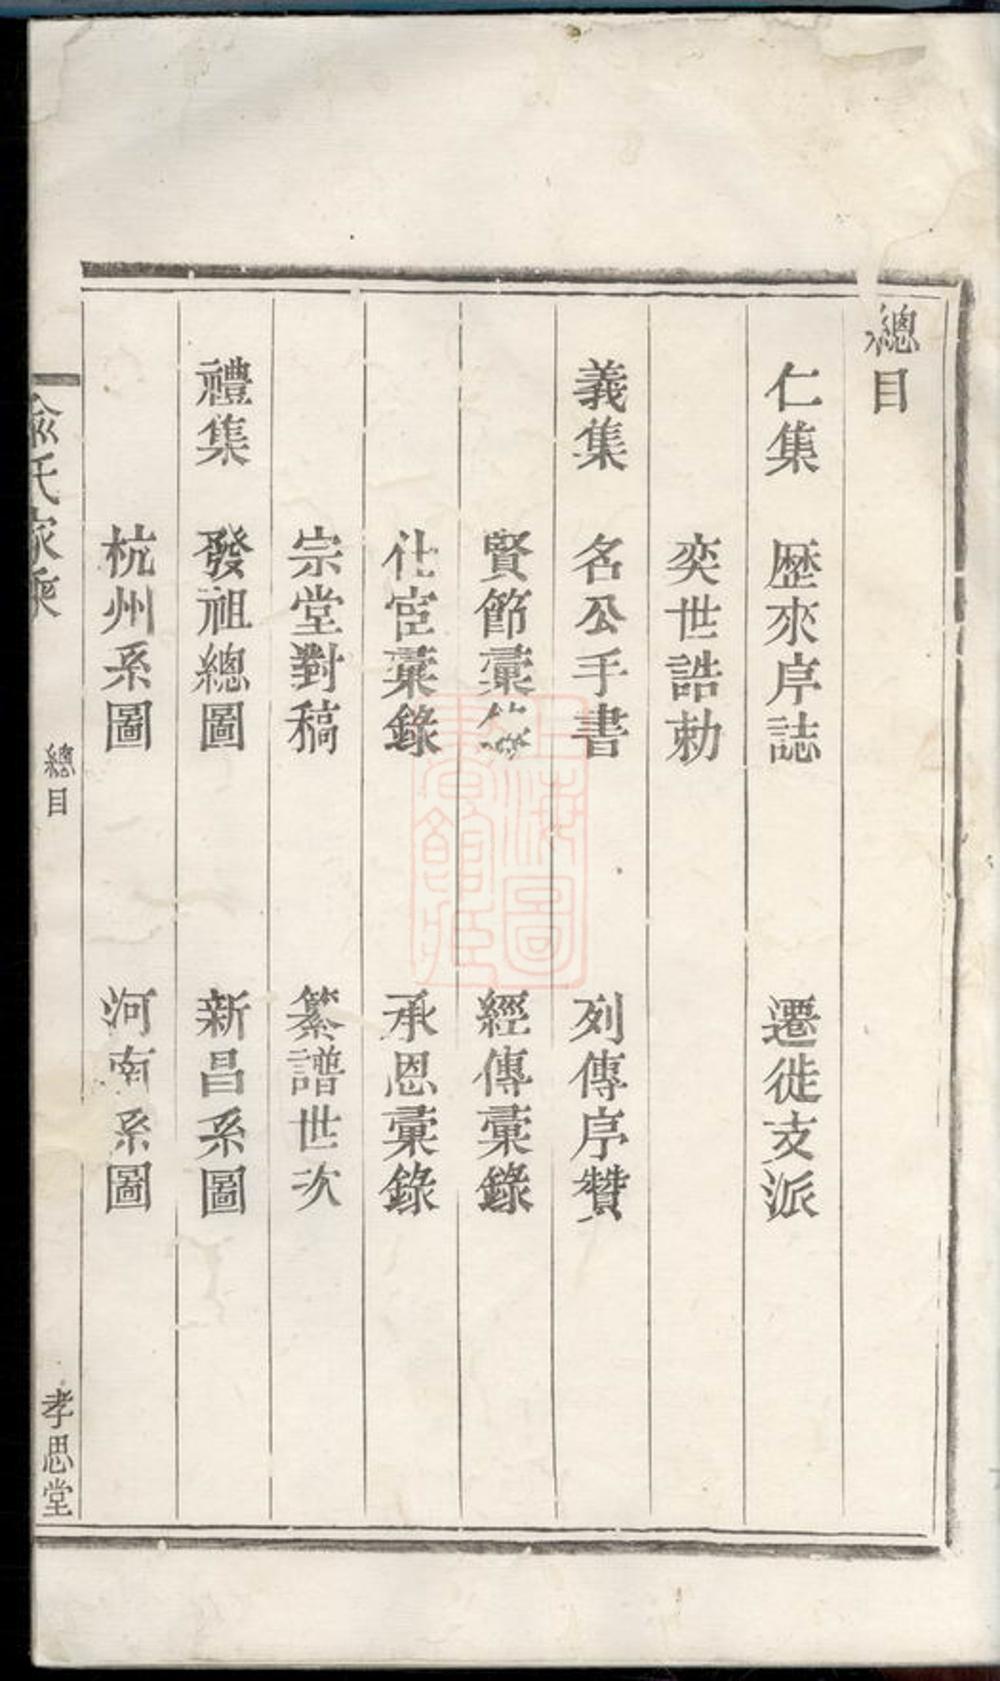 總目
仁集 歴來序誌 遷徙支派
奕世誥勅
義集 名公手書 列傳序贊
賢節彚 經傳彚錄
仕宦彚錄 承恩彚錄
宗堂對稿 纂譜世次
禮集 發祖總圖 新昌系圖
杭州系圖 河南系圖
俞氏家乘 總目 孝思堂
上海圖書館藏